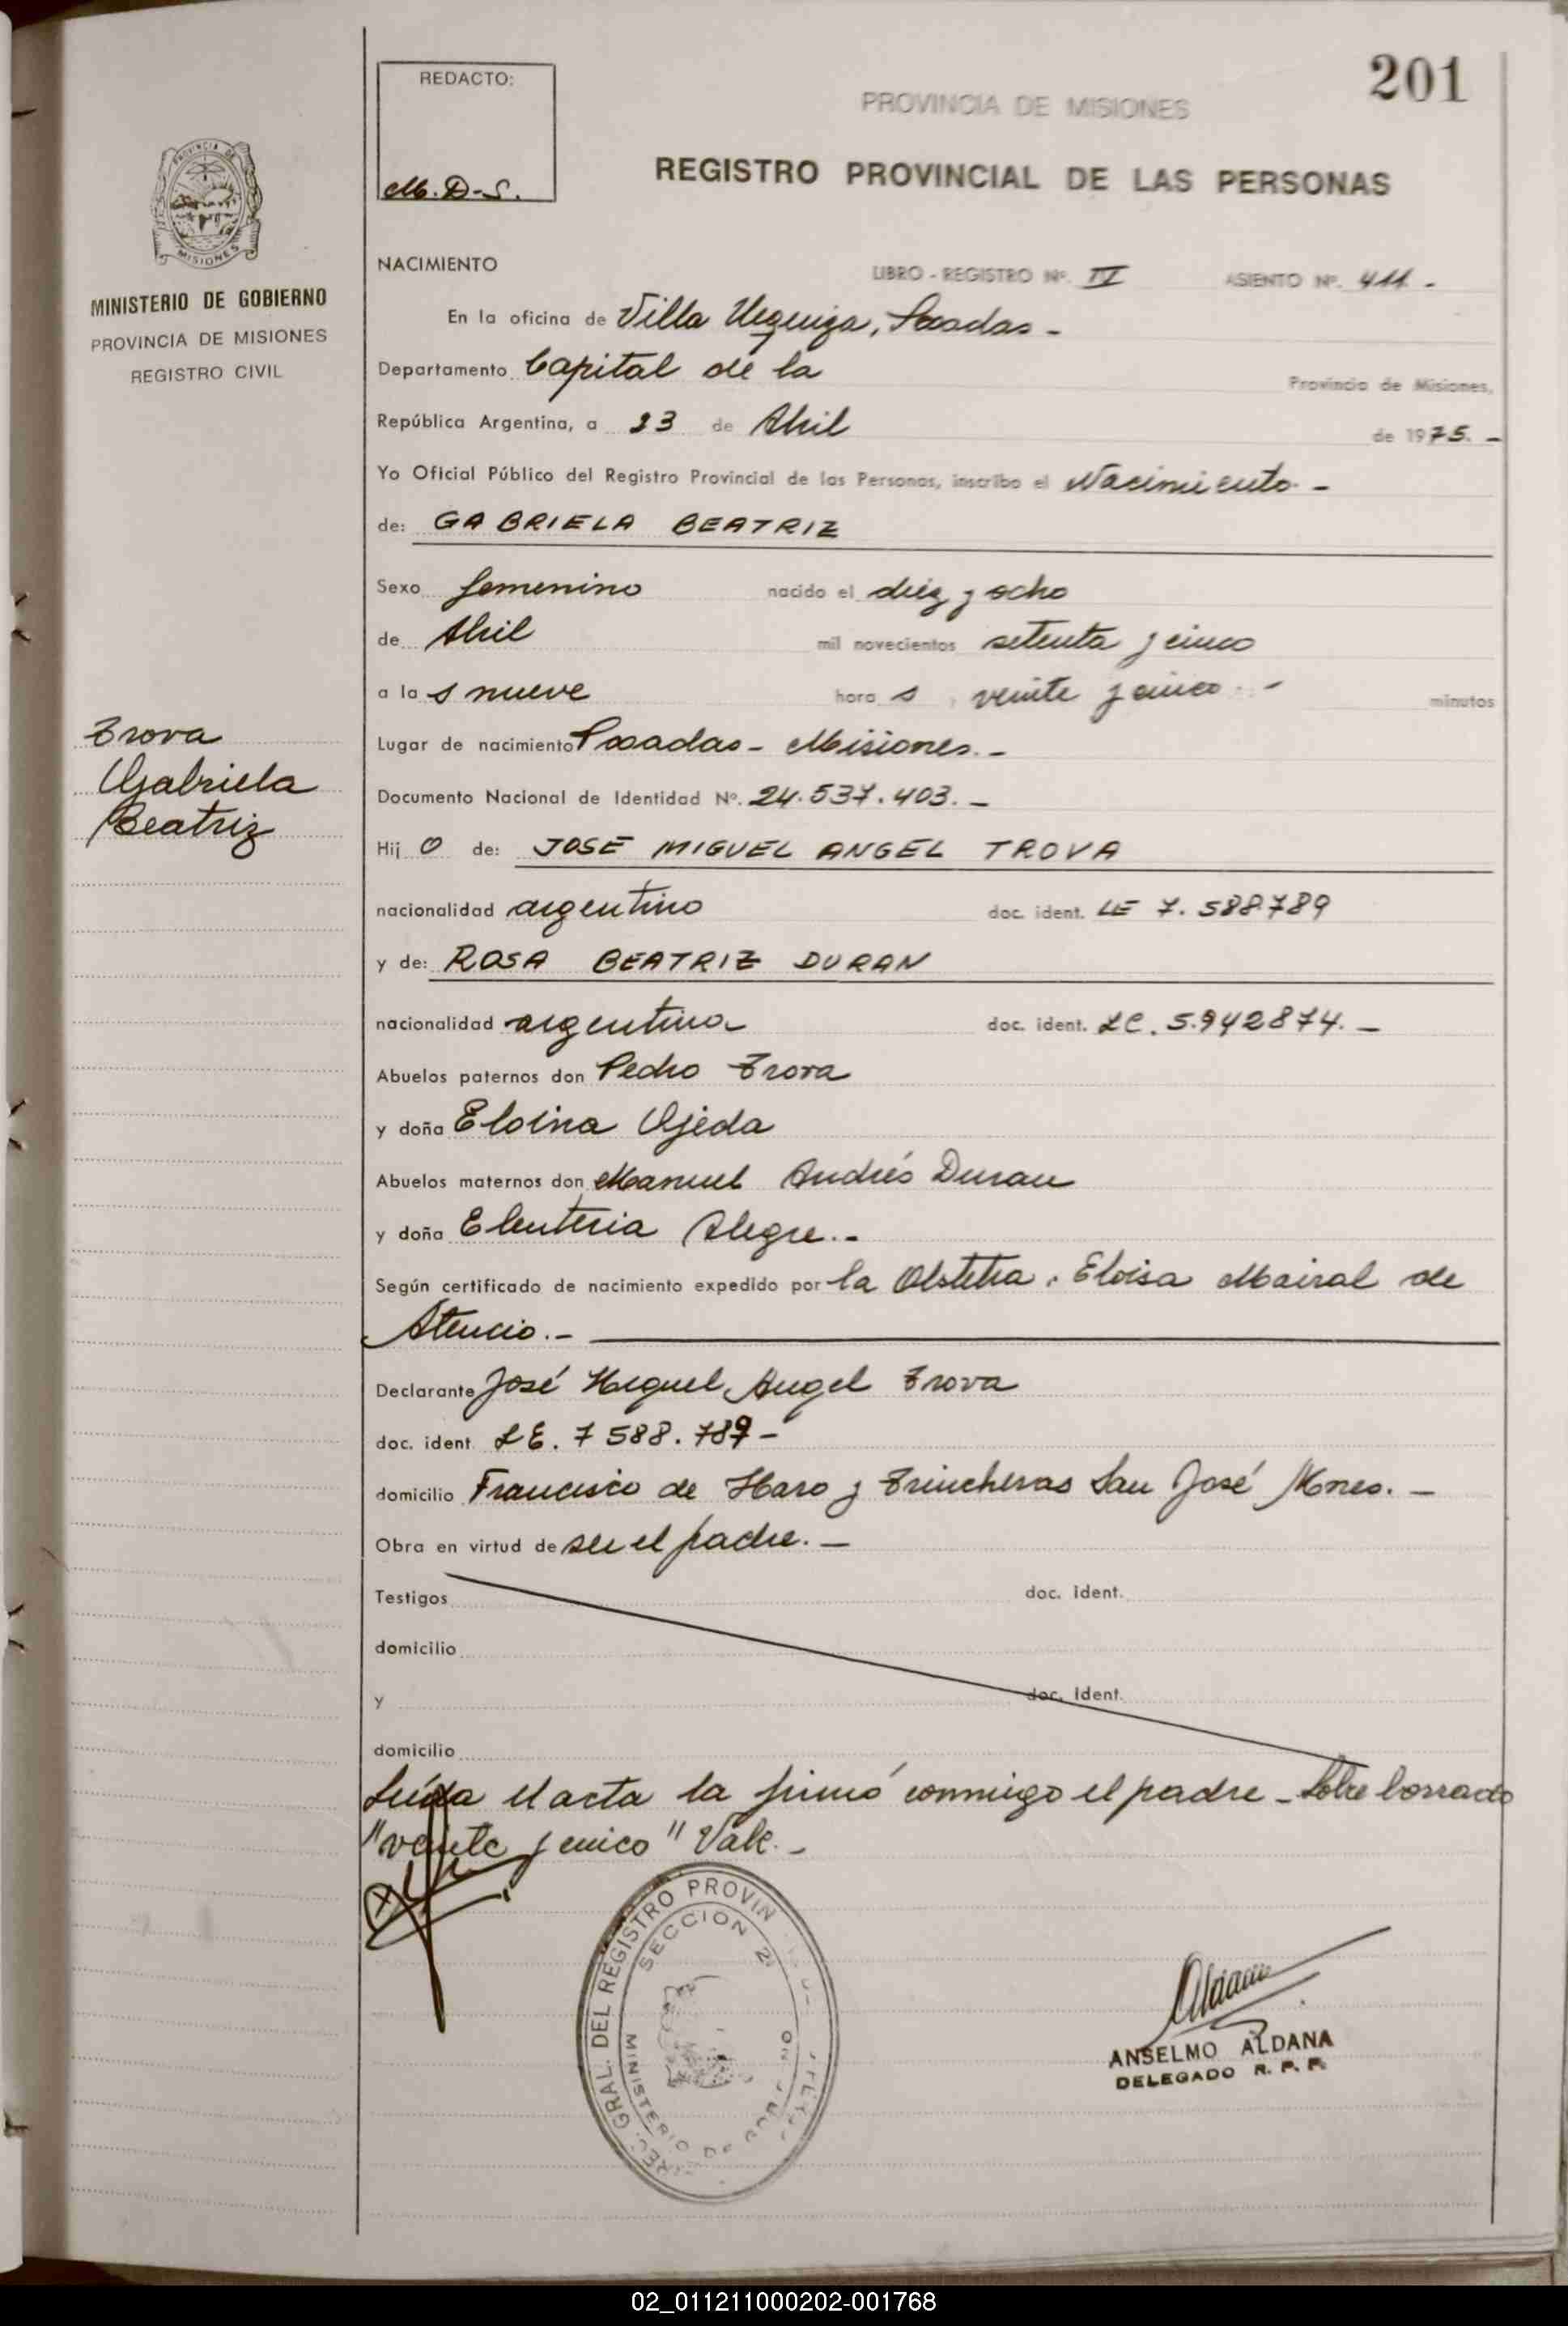 201
REDACTO:
M. D-S.
PROVINCIA DE MISIONES
REGISTRO PROVINCIAL DE LAS PERSONAS
PROVINCIA DE
MISIONES
MINISTERIO DE GOBIERNO
PROVINCIA DE MISIONES
REGISTRO CIVIL
NACIMIENTO
LIBRO - REGISTRO Nº. IV ASIENTO Nº. 411.-
En la oficina de Villa Urquiza, Posadas-
Departamento Capital de la Provincia de Misiones,
República Argentina, a 23 de Abril de 1975.-
Yo Oficial Público del Registro Provincial de las Personas, inscribo el Nacimiento.-
de: GABRIELA BEATRIZ
Sexo femenino nacido el diez y ocho
de Abril mil novecientos setenta y cinco
a las nueve horas, veinte y cinco.- minutos
Trova
Gabriela
Beatriz
Lugar de nacimiento Posadas- Misiones.-
Documento Nacional de Identidad Nº. 24.537.403.-
Hij O de: JOSE MIGUEL ANGEL TROVA
nacionalidad argentino doc. ident. LE 7.588.789
y de: ROSA BEATRIZ DURAN
nacionalidad argentina doc. ident. LC. 5.942874.-
Abuelos paternos don Pedro Trova
y doña Eloina Ojeda
Abuelos maternos don Manuel Andrés Duran
y doña Eleuteria Alegre.-
Según certificado de nacimiento expedido por la Obstetra. Eloisa Mairal de
Atencio.-
Declarante José Miguel Angel Trova
doc. ident LE. 7 588.789-
domicilio Francisco de Haro y Trincheras San José Mnes.-
Obra en virtud de ser el padre.-
Testigos doc. ident.
domicilio
y doc. Ident.
domicilio
Leída el acta la firmó conmigo el padre - Sobre borrado
"veinte y cinco" Vale.-
GRAL. DEL REGISTRO PROVIN
SECCION 2ª
MINISTERIO DE
ANSELMO ALDANA
DELEGADO R. P. P.
02_011211000202-001768